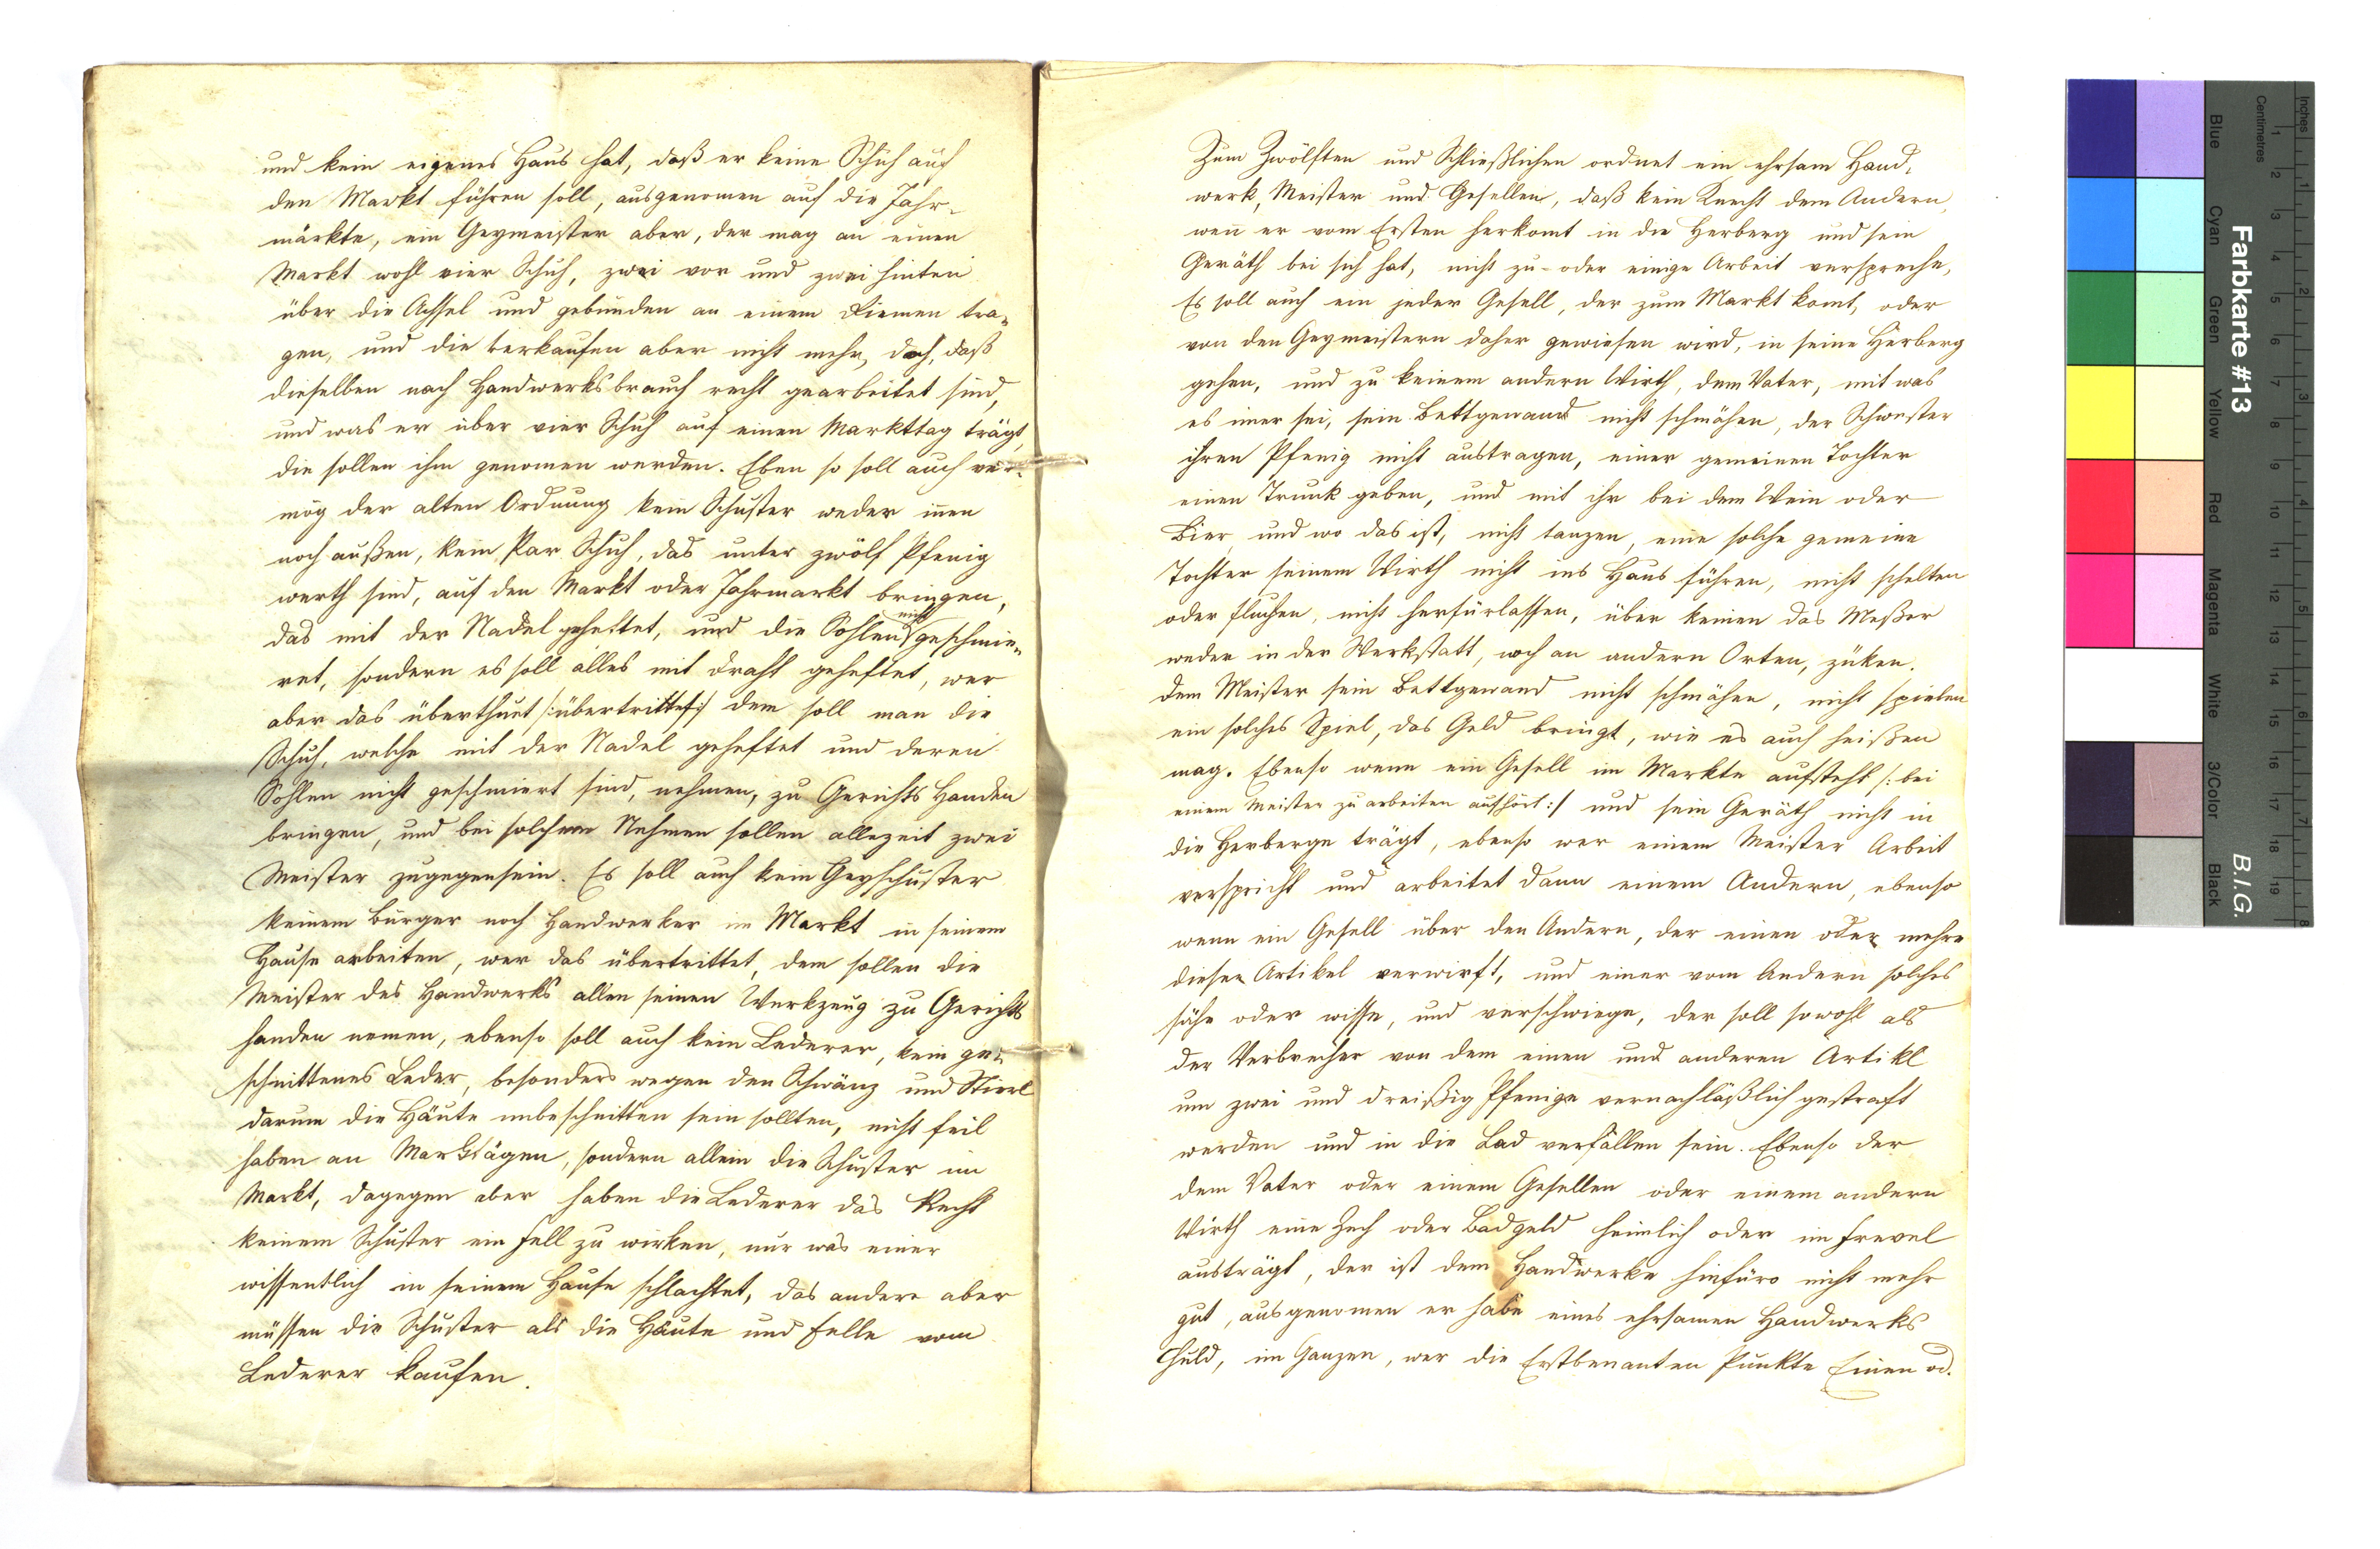 und kein eigenes Haus hat, daß er keine Schuh auf
den Markt führen soll, ausgenomen auf die Jahr-
märkte, ein Geymeister aber, der mag an einen
Markt wohl vier Schuh, zwei vor und zwei hinten
über die Achsel und gebunden an einem Riemen tra-
gen, und die verkaufen aber nicht mehr, doch, daß
dieselben nach Handwerksbrauch recht gearbeitet sind,
und was er über vier Schuh auf einen Markttag trägt,
die sollen ihm genomen werden. Eben so soll auch ver-
mög der alten Ordnung kein Schuster weder inen
noch außen, kein Par Schuh, das unter zwölf Pfenig
werth sind, auf den Markt oder Jahrmarkt bringen,
das mit der Nadel geheftet, und die Sohlen nicht geschmie-
ret, sondern es soll alles mit Draht geheftet, wer
aber das überthuet /:übertrittet:/ dem soll man die
Schuh, welche mit der Nadel geheftet und deren
Sohlen nicht geschmiert sind, nehmen, zu Gerichts Handen
bringen, und bei solchem Nehmen sollen allezeit zwei
Meister zugegensein. Es soll auch kein Geyschuster
keinem Bürger noch Handwerker im Markt in seinem
Hause arbeiten, wer das übertrittet, dem sollen die
Meister des Handwerks allen seinen Werkzeug zu Gerichts
handen nemen, ebenso soll auch kein Lederer, kein ge-
schnittenes Leder, besonders wegen den Schwänz und Stierl
darum die Häute unbeschnitten sein sollten, nicht feil
haben an Marktägen, sondern allein die Schuster im
Markt, dagegen aber haben die Lederer das Recht
keinem Schuster ein Fell zu wirken, nur was einer
wissentlich in seinem Hause schlachtet, das andere aber
müssen die Schuster als die Häute und Felle vom
Lederer kaufen.
Zum Zwölften und Schließlichen ordnet ein ehrsam Hand-
werk, Meister und Gesellen, daß kein Knecht dem Andern,
wen er vom Ersten herkomt in die Herberg und sein
Geräth bei sich hat, nicht zu- oder einige Arbeit verspreche,
Es soll auch ein jeder Gesell, der zum Markt komt, oder
von den Geymeistern daher gewiesen wird, in seine Herberg
gehen, und zu keinem andern Wirth, dem Vater, mit was
es imer sei, sein Bettgewand nicht schmähen, der Schwester
ihren Pfenig nicht austragen, einer gemeinen Tochter
einen Trunk geben, und mit ihr bei dem Wein oder
Bier, und wo das ist, nicht tanzen, eine solche gemeine
Tochter seinem Wirth nicht ins Haus führen, nicht schelten
oder fluchen, nicht herfürlassen, über keinen das Meßer
weder in der Werkstatt, noch an andern Orten, züken.
dem Meister sein Bettgewand nicht schmähen, nicht spielen
ein solches Spiel, das Geld bringt, wie es auch heißen
mag. Ebenso wenn ein Gesell im Markte aufsteht /: bei
einem Meister zu arbeiten aufhört :/ und sein Geräth nicht in
die Herberge trägt, ebenso wer einem Meister Arbeit
verspricht und arbeitet dann einem Andern, ebenso
wenn ein Gesell über den Andern, der einen oder mehre
dieser Artikel verwirft, und einer vom Andern solches
sähe oder wisse, und verschwiege, der soll sowohl als
der Verbrecher von dem einen und anderen Artikl
um zwei und dreißig Pfenige vernachläßlich gestraft
werden und in die Lad verfallen sein. Ebenso der
dem Vater oder einem Gesellen oder einem andern
Wirth eine Zech oder Badgeld heimlich oder im Frevel
austrägt, der ist dem Handwerke hinfüro nicht mehr
gut, ausgenomen er habe eines ehrsamen Handwerks
Huld, im Ganzen, wer die Erstbenanten Punkte Einen od.
Farbkarte #13
B.I.G.
Centimetres
Inches
Blue
Cyan
Green
Yellow
Red
Magenta
White
3/Color
Black
1 2 3 4 5 6 7 8 9 10 11 12 13 14 15 16 17 18 19
1 2 3 4 5 6 7 8